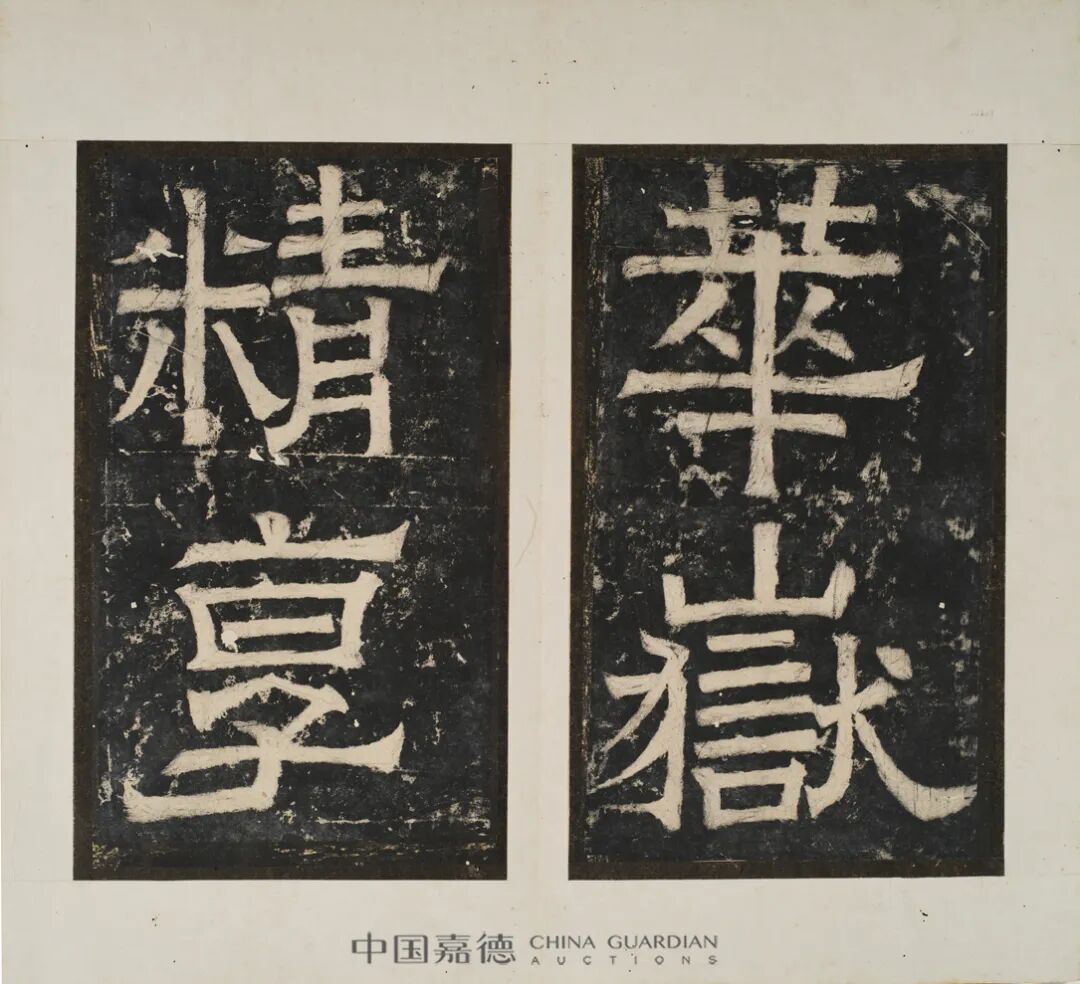 華嶽
精享
中国嘉德 CHINA GUARDIAN
AUCTIONS